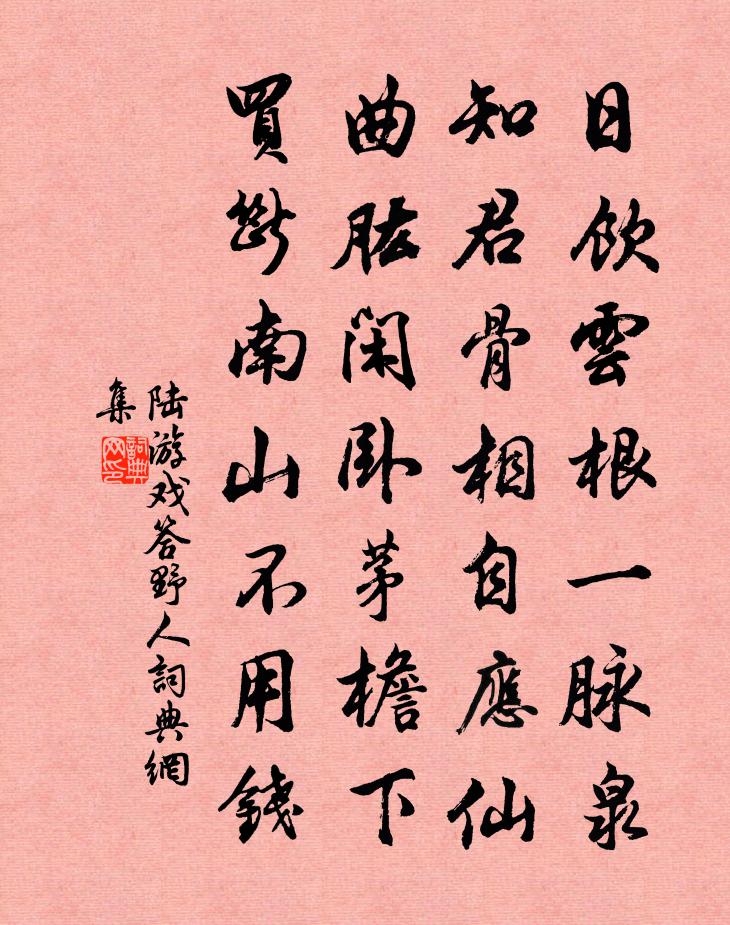 日飲雲根一脉泉
知君骨相自應仙
曲肱閑卧茅檐下
買斷南山不用錢
陆游戏答野人詞典網
集
詞典
网印